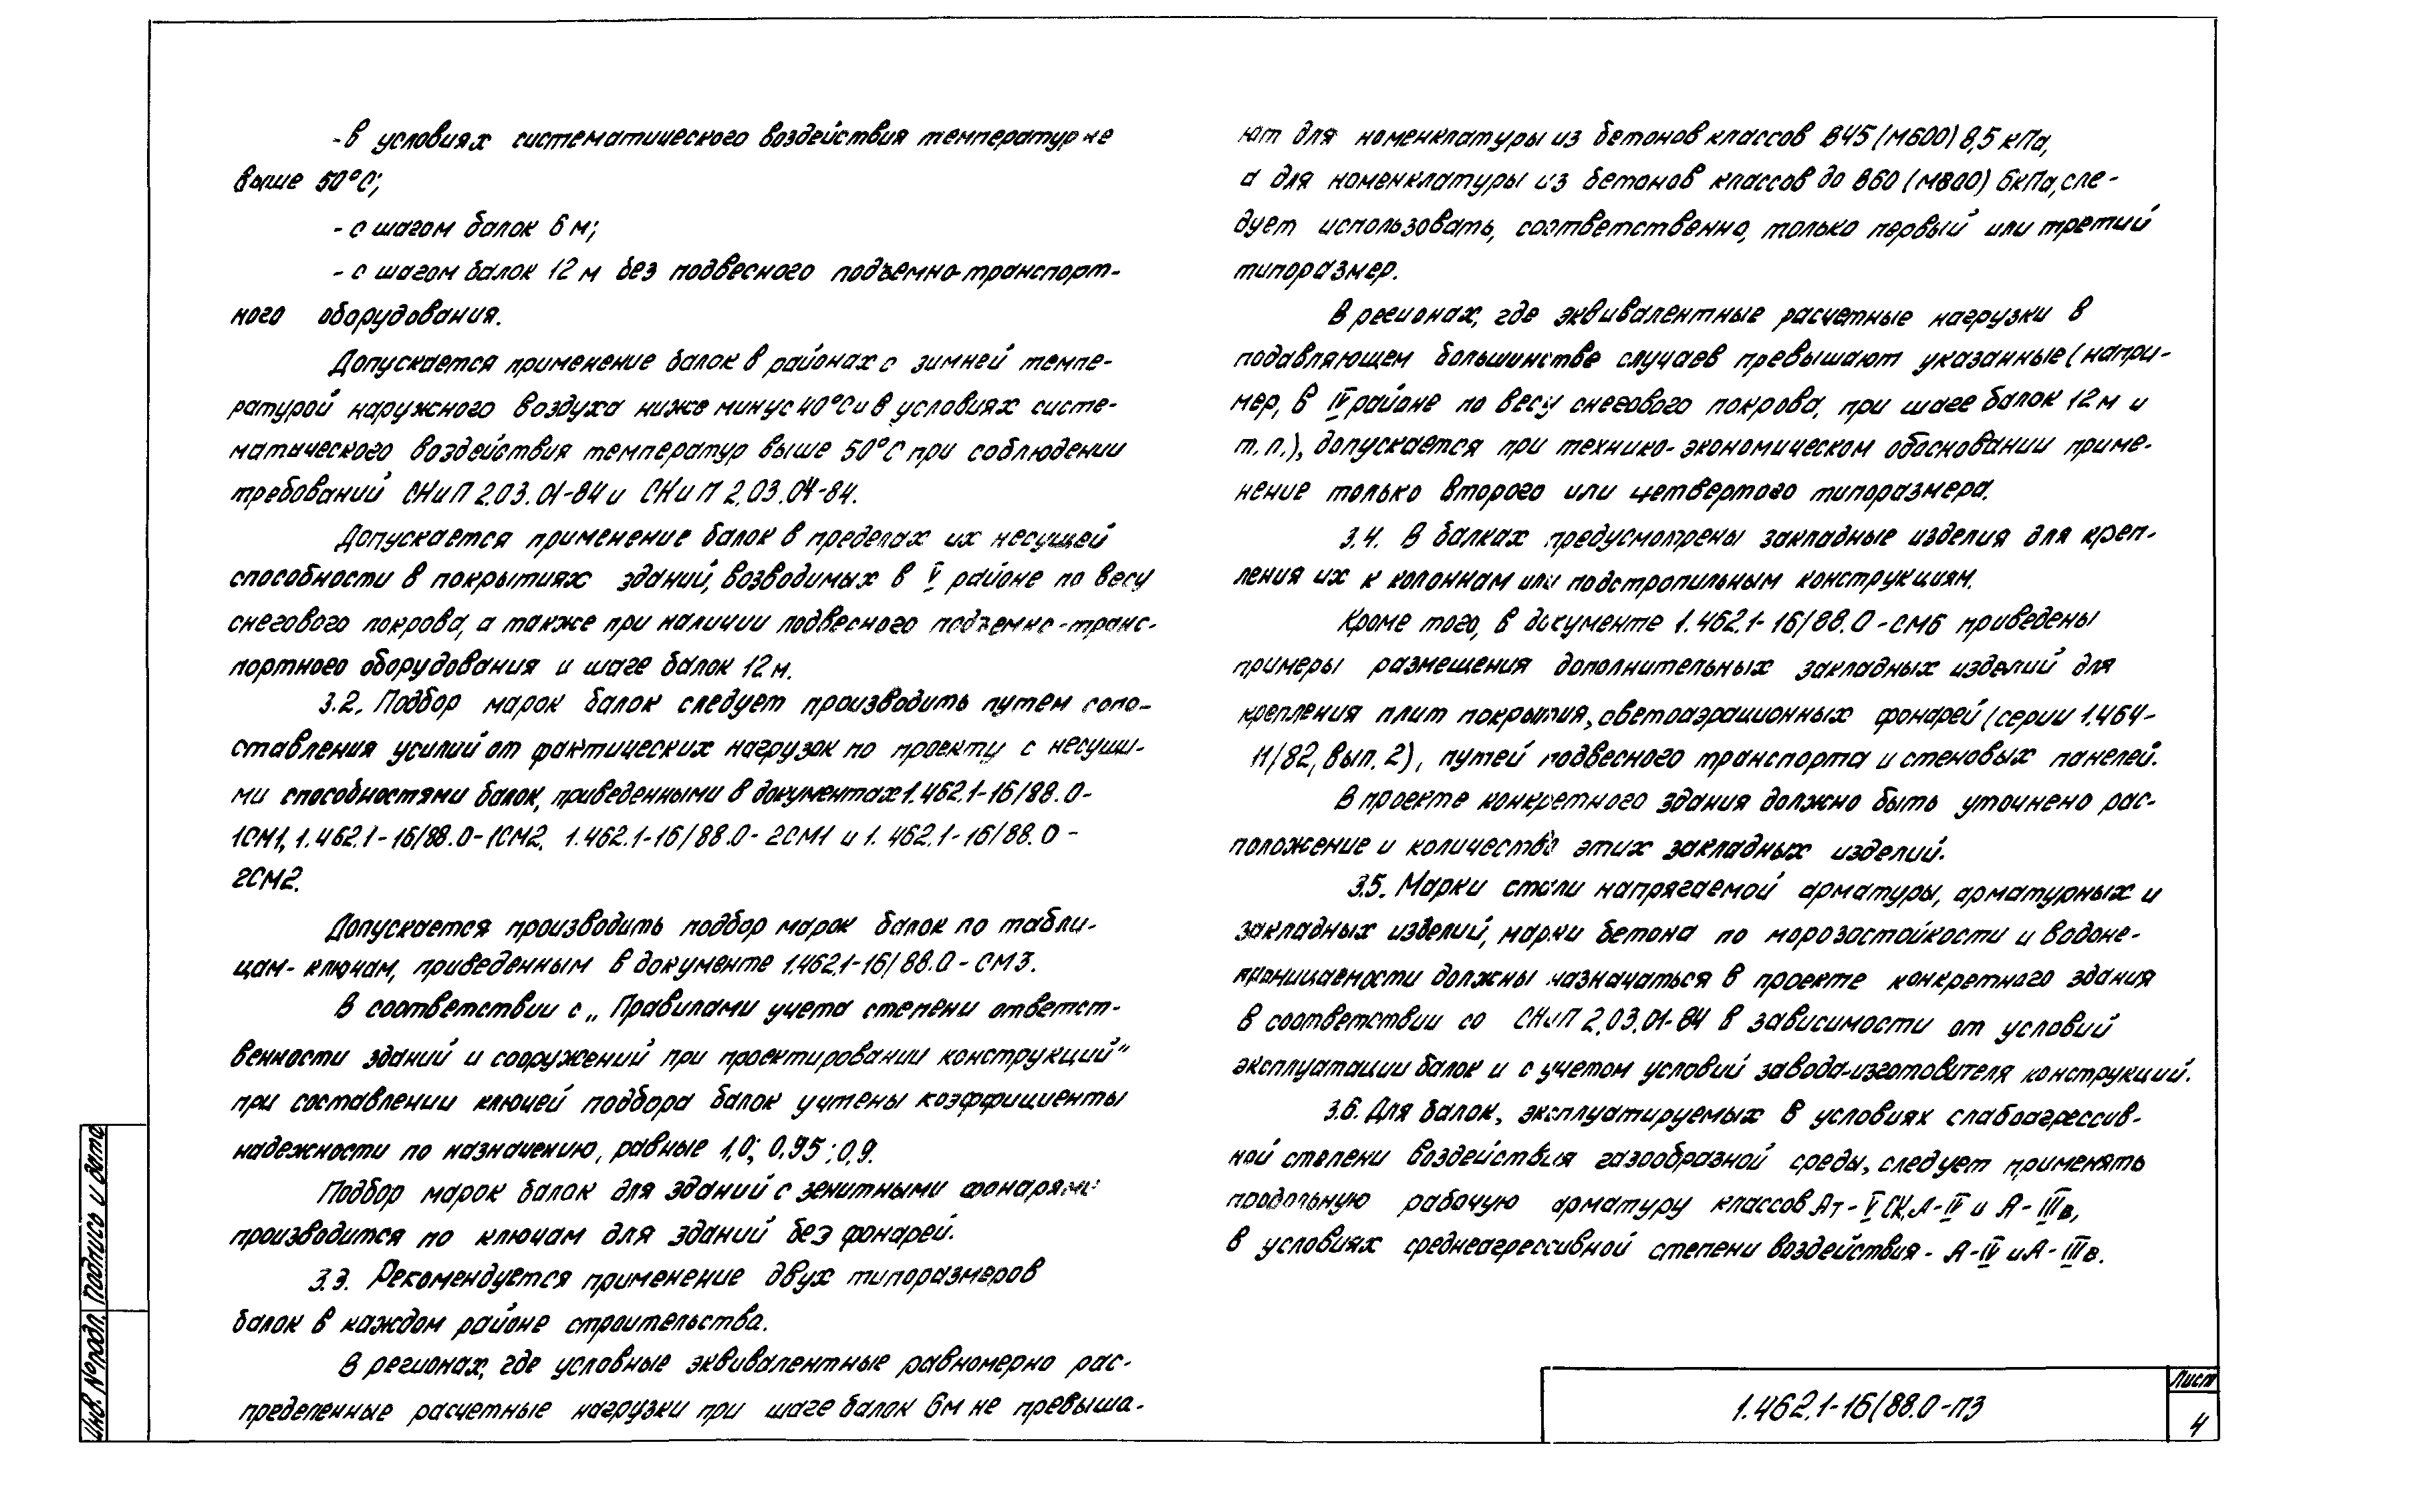 - в условиях систематического воздействия температур не
выше 50°С;
- с шагом балок 6 м;
- с шагом балок 12 м без подвесного подъемно-транспорт-
ного оборудования.
Допускается применение балок в районах с зимней темпе-
ратурой наружного воздуха ниже минус 40°С и в условиях систе-
матического воздействия температур выше 50°С при соблюдении
требований СНиП 2.03.01-84 и СНиП 2.03.04-84.
Допускается применение балок в пределах их несущей
способности в покрытиях зданий, возводимых в V районе по весу
снегового покрова, а также при наличии подвесного подъемно-транс-
портного оборудования и шаге балок 12 м.
3.2. Подбор марок балок следует производить путем сопо-
ставления усилий от фактических нагрузок по проекту с несущи-
ми способностями балок, приведенными в документах 1.462.1-16/88.0-
1СМ1, 1.462.1-16/88.0-1СМ2, 1.462.1-16/88.0-2СМ1 и 1.462.1-16/88.0-
2СМ2.
Допускается производить подбор марок балок по табли-
цам-ключам, приведенным в документе 1.462.1-16/88.0-СМ3.
В соответствии с „Правилами учета степени ответст-
венности зданий и сооружений при проектировании конструкций"
при составлении ключей подбора балок учтены коэффициенты
надежности по назначению, равные 1,0; 0,95; 0,9.
Подбор марок балок для зданий с зенитными фонарями
производится по ключам для зданий без фонарей.
3.3. Рекомендуется применение двух типоразмеров
балок в каждом районе строительства.
В регионах, где условные эквивалентные равномерно рас-
пределенные расчетные нагрузки при шаге балок 6м не превыша-
ют для номенклатуры из бетонов классов В45 (М600) 8,5 кПа,
а для номенклатуры из бетонов классов до В60 (М800) 6кПа, сле-
дует использовать, соответственно, только первый или третий
типоразмер.
В регионах, где эквивалентные расчетные нагрузки в
подавляющем большинстве случаев превышают указанные (напри-
мер, в IV районе по весу снегового покрова, при шаге балок 12 м и
т.п.), допускается при технико-экономическом обосновании приме-
нение только второго или четвертого типоразмера.
3.4. В балках предусмотрены закладные изделия для креп-
ления их к колоннам или подстропильным конструкциям.
Кроме того, в документе 1.462.1-16/88.0-СМ6 приведены
примеры размещения дополнительных закладных изделий для
крепления плит покрытия, светоаэрационных фонарей (серии 1.464-
11/82, вып. 2), путей подвесного транспорта и стеновых панелей.
В проекте конкретного здания должно быть уточнено рас-
положение и количество этих закладных изделий.
3.5. Марки стали напрягаемой арматуры, арматурных и
закладных изделий, марки бетона по морозостойкости и водоне-
проницаемости должны назначаться в проекте конкретного здания
в соответствии со СНиП 2.03.01-84 в зависимости от условий
эксплуатации балок и с учетом условий завода-изготовителя конструкций.
3.6. Для балок, эксплуатируемых в условиях слабоагрессив-
ной степени воздействия газообразной среды, следует применять
продольную рабочую арматуру классов Ат-V СК, А-IV и А-IIIв,
в условиях среднеагрессивной степени воздействия - А-IV и А-IIIв.
Инв. № подл. Подпись и дата
1.462.1-16/88.0-ПЗ
Лист
4